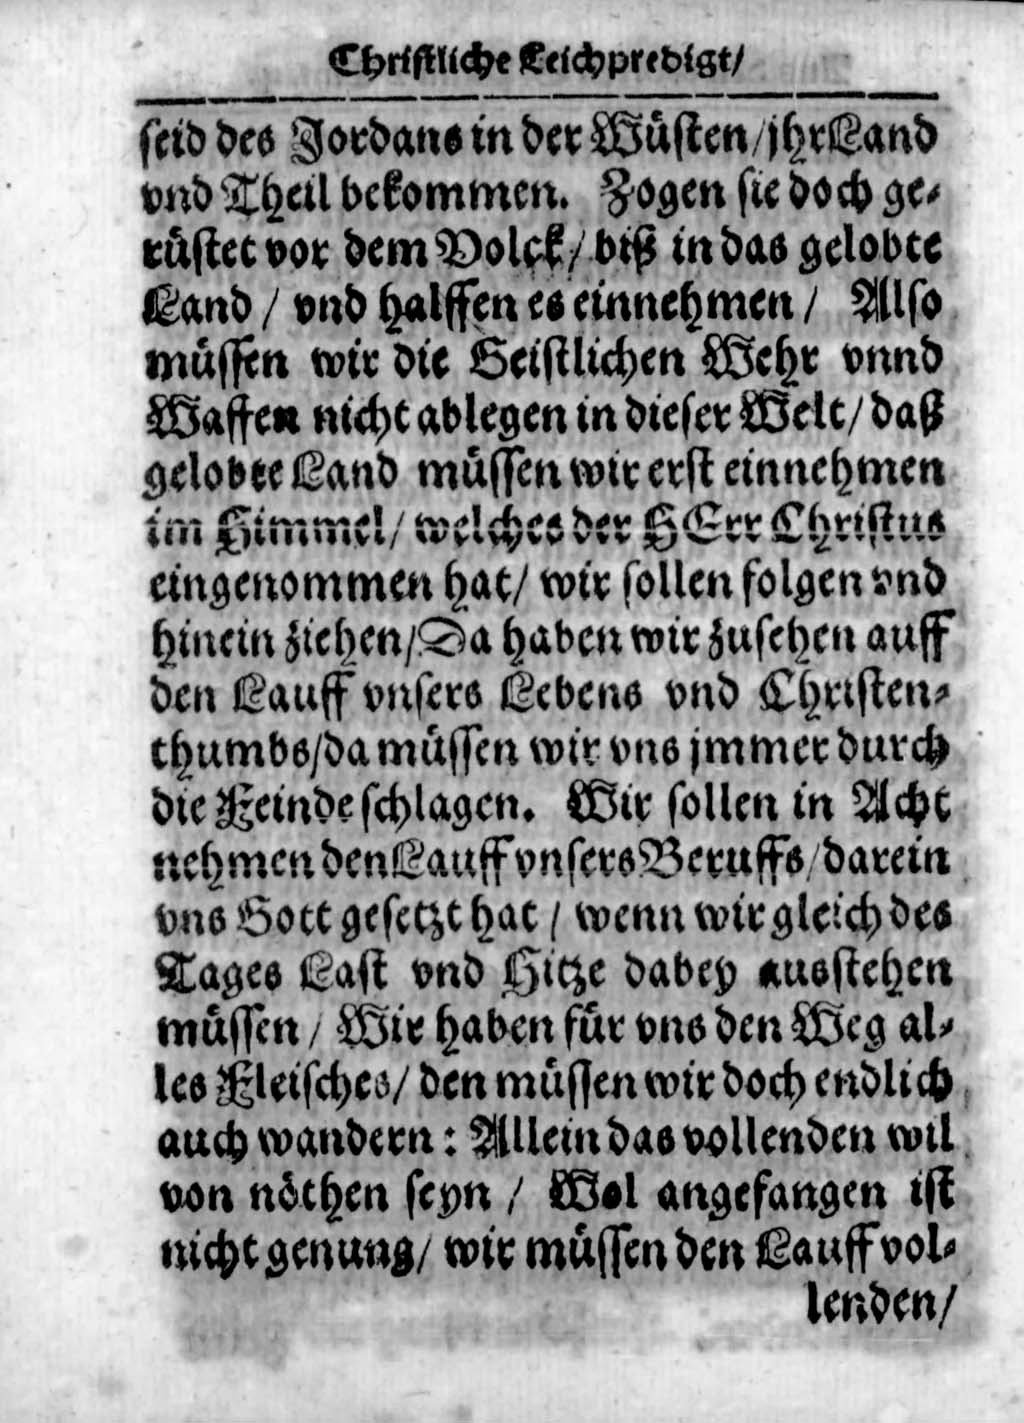 Christliche Leichpredigt/
seid des Jordans in der Wüsten/jhr Land
vnd Theil bekommen. Zogen sie doch ge-
rüstet vor dem Volck/ biß in das gelobte
Land / vnd halffen es einnehmen / Also
müssen wir die Geistlichen Wehr vnnd
Waffen nicht ablegen in dieser Welt/ daß
gelobte Land müssen wir erst einnehmen
im Himmel/ welches der HErr Christus
eingenommen hat/ wir sollen folgen vnd
hinein ziehen/Da haben wir zusehen auff
den Lauff vnsers Lebens vnd Christen-
thumbs/da müssen wir vns jmmer durch
die Feinde schlagen. Wir sollen in Acht
nehmen den Lauff vnsers Beruffs/darein
vns Gott gesetzt hat / wenn wir gleich des
Tages Last vnd Hitze dabey ausstehen
müssen / Wir haben für vns den Weg al-
les Fleisches/ den müssen wir doch endlich
auch wandern: Allein das vollenden wil
von nöthen seyn / Wol angefangen ist
nicht genung/ wir müssen den Lauff vol-
lenden/